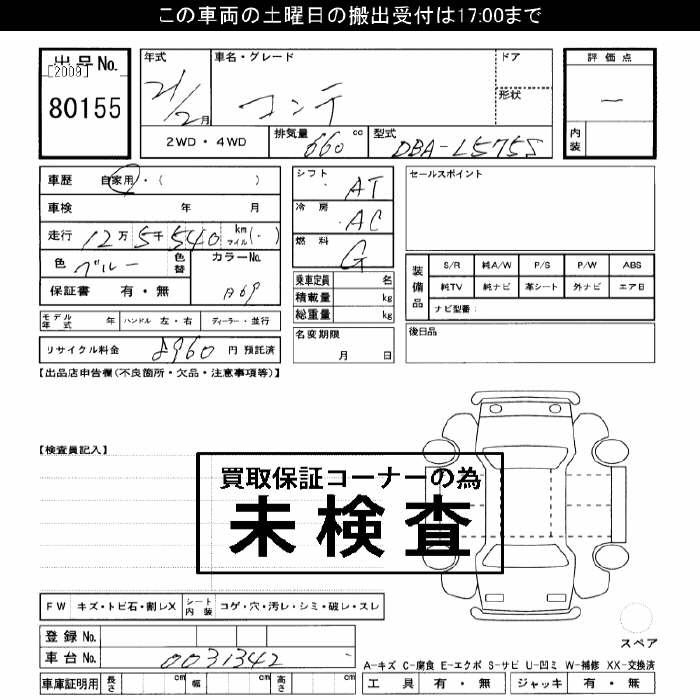 この車両の土曜日の搬出受付は17:00まで
出品No. [2009]
80155
年式 21/2月
車名・グレード コンテ
ドア
形状
評価点 ー
内装
2WD・4WD 排気量 660 cc 型式 DBA-L575S
車歴 自家用・( )
車検 年 月
走行 12万5千540 km マイル(・)
色 ブルー 色替 カラーNo. B69
保証書 有・無
モデル年式 年 ハンドル 左・右 ディーラー・並行
リサイクル料金 8960 円 預託済
シフト AT
冷房 AC
燃料 G
乗車定員 名
積載量 kg
総重量 kg
名変期限
月 日
セールスポイント
装備品
S/R 純A/W P/S P/W ABS
純TV 純ナビ 革シート 外ナビ エアB
ナビ型番:
後日品
【出品店申告欄(不良箇所・欠品・注意事項等)】
【検査員記入】
買取保証コーナーの為
未検査
FW キズ・トビ石・割レX シート内装 コゲ・穴・汚レ・シミ・破レ・スレ
登録No.
車台No. 0031342
車庫証明用 長さ cm 幅 cm 高さ cm
スペア
A-キズ C-腐食 E-エクボ S-サビ U-凹ミ W-補修 XX-交換済
工具 有・無 ジャッキ 有・無